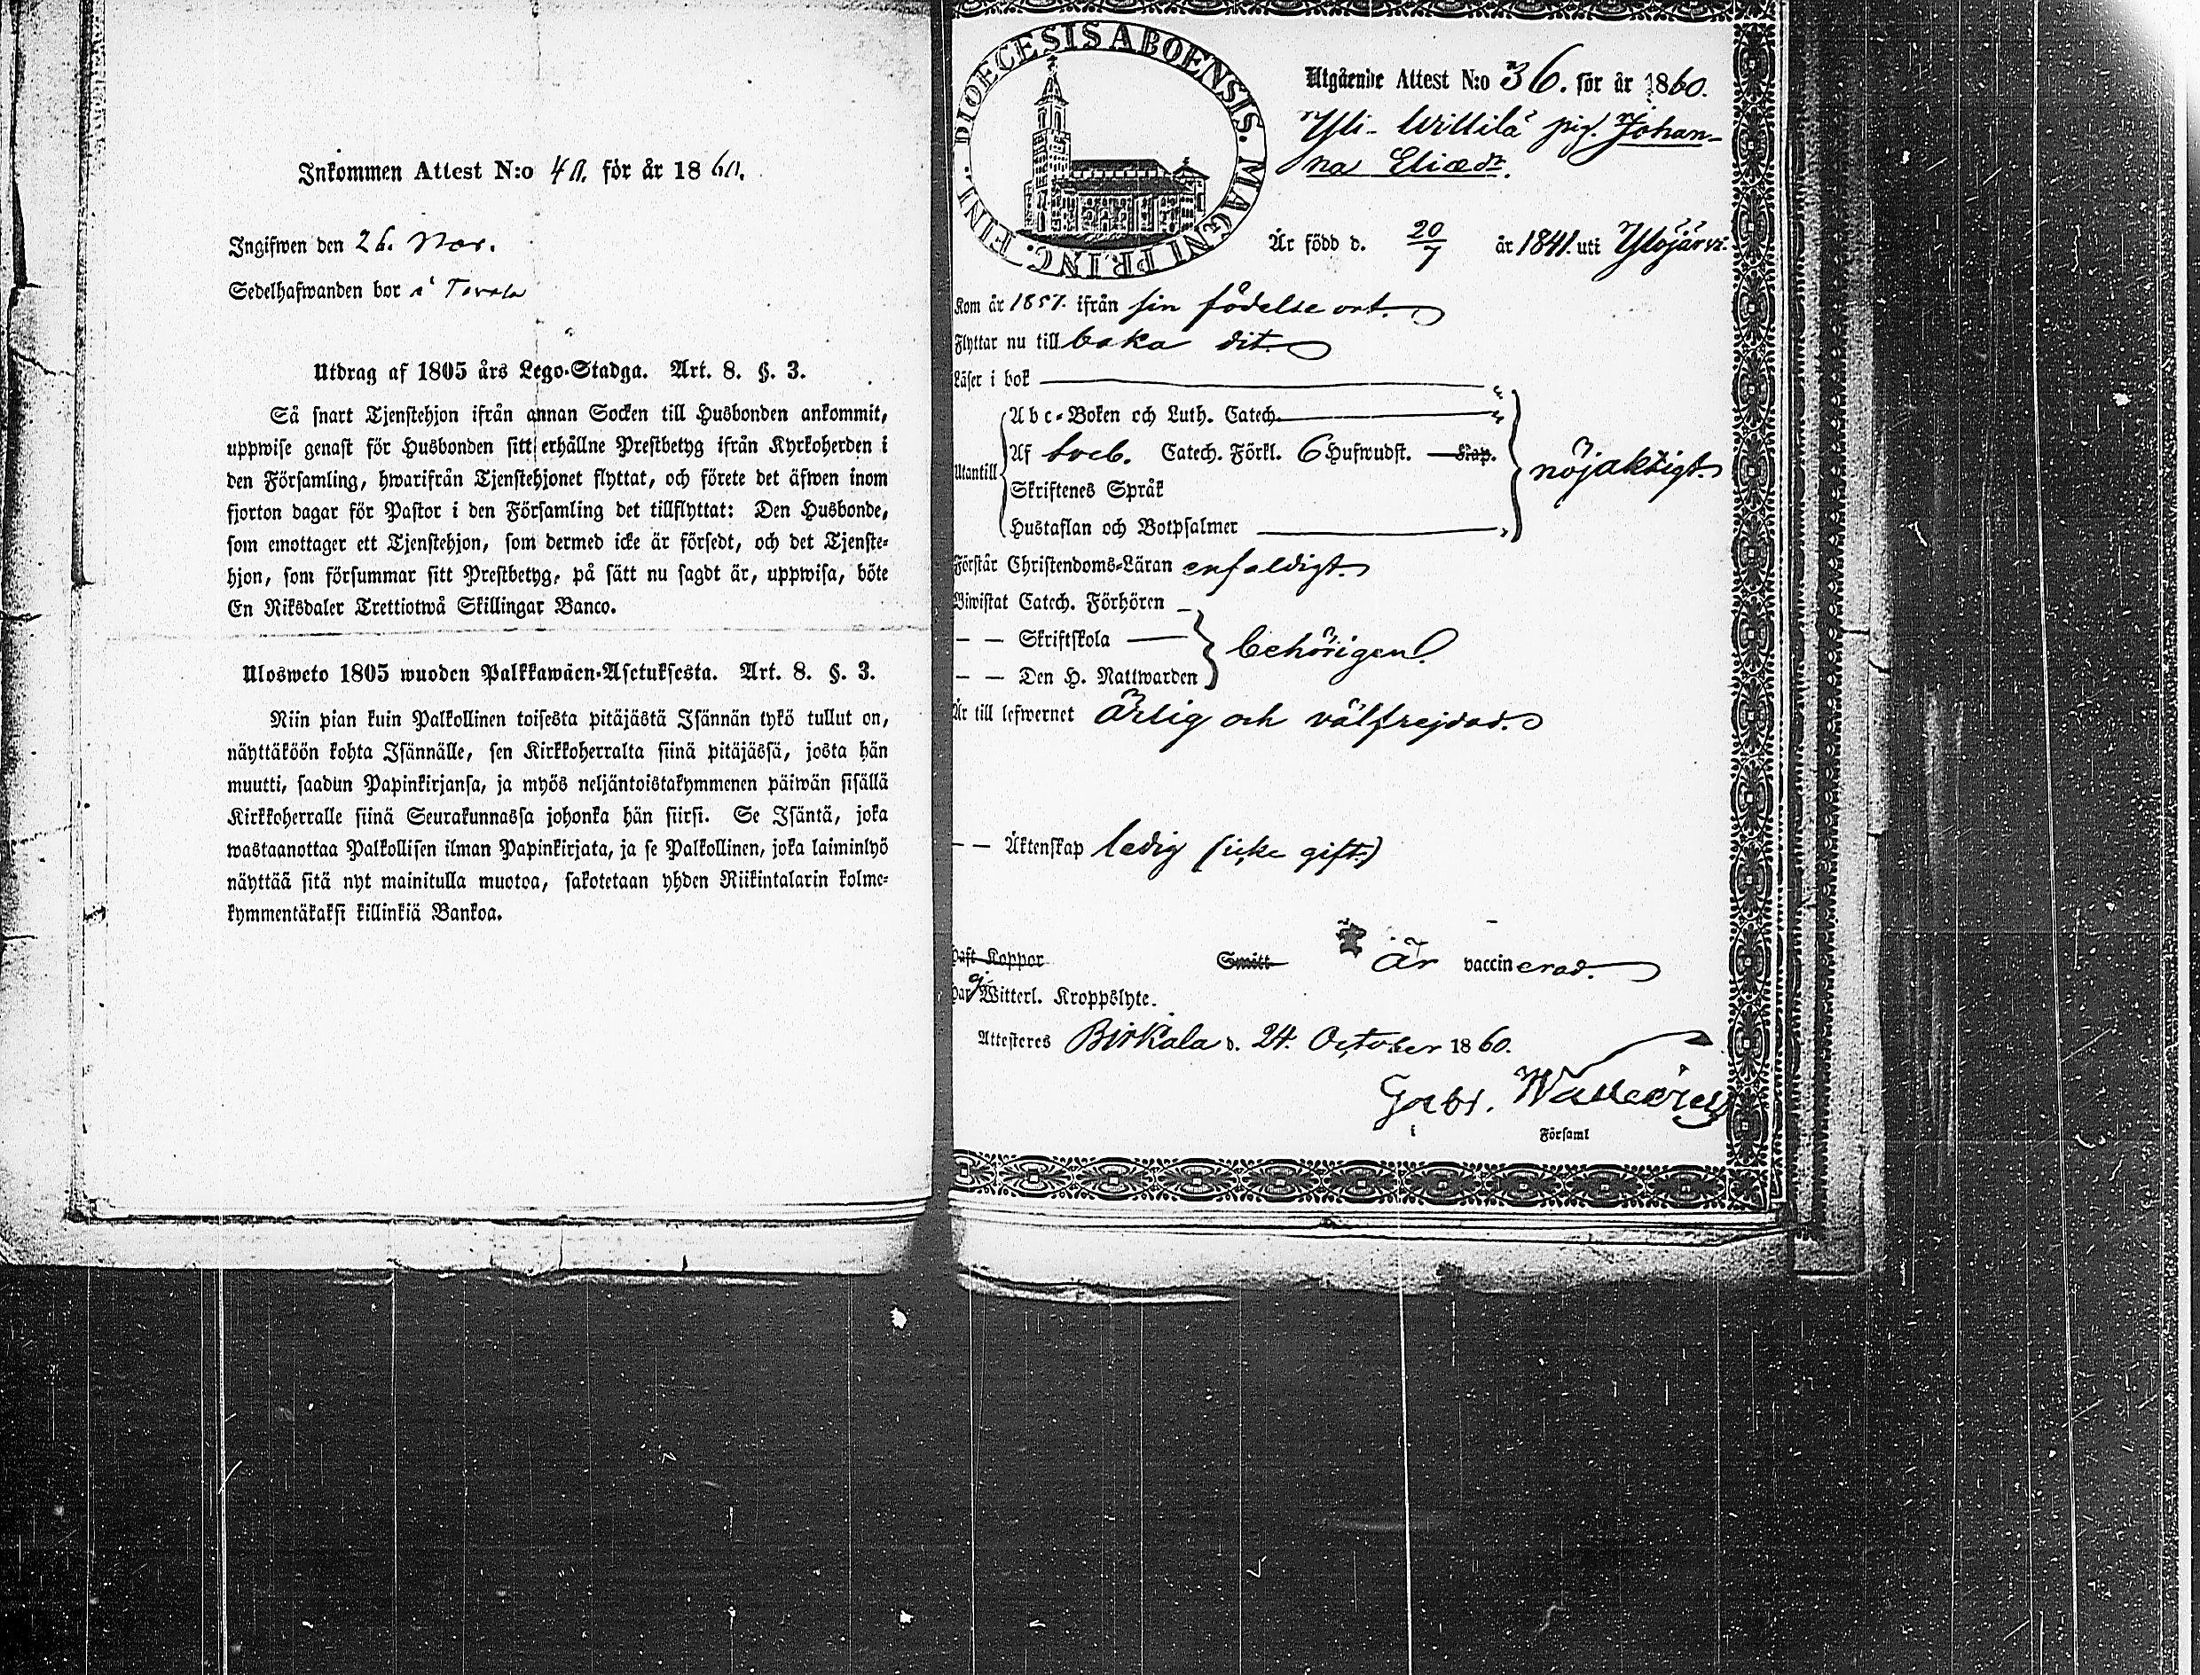 Inkommen Attest N:o 40. för år 1860.
Ingifwen den 26. Nov.
Sedelhafwanden bor i
Utdrag af 1805 års Lego-Stadga. Art. 8. §. 3.
Så snart Tjenstehjon ifrån annan Socken till Husbonden ankommit,
uppwise genast för Husbonden sitt erhållne Prestbetyg ifrån Kyrkoherden i
den Församling, hwarifrån Tjenstehjonet flyttat, och förete det äfwen inom
fjorton dagar för Pastor i den Församling det tillflyttat: Den Husbonde,
som emottager ett Tjenstehjon, som dermed icke är försedt, och det Tjenste-
hjon, som försummar sitt Prestbetyg, på sätt nu sagdt är, uppwisa, böte
En Riksdaler Trettiotwå Skillingar Banco.
Ulosweto 1805 wuoden Palkkawäen-Asetuksesta. Art. 8. §. 3.
Niin pian kuin Palkollinen toisesta pitäjästä Isännän tykö tullut on,
näyttäköön kohta Isännälle, sen Kirkkoherralta siinä pitäjässä, josta hän
muutti, saadun Papinkirjansa, ja myös neljäntoistakymmenen päiwän sisällä
Kirkkoherralle siinä Seurakunnassa johonka hän siirsi. Se Isäntä, joka
wastaanottaa Palkollisen ilman Papinkirjata, ja se Palkollinen, joka laiminlyö
näyttää sitä nyt mainitulla muotoa, sakotetaan yhden Riikintalarin kolme-
kymmentäkaksi killinkiä Bankoa.
DIOECESIS ABOENSIS. MAGNI PRINC. FINL.
Utgående Attest N:o 36. för år 1860.
Yli-Willilä pig. Johan-
na Eliædr.
Är född d. 20/7 år 1841. uti Ylöjärvi.
Kom år 1857. ifrån sin födelse ort.
Flyttar nu till baka dit.
Läser i bok
Abc-Boken och Luth. Catech.
Utantill Af Sveb. Catech. Förkl. 6 Hufwudst. Kap. nöjaktigt.
Skriftenes Språk
Hustaflan och Botpsalmer
Förstår Christendoms-Läran enfaldigt.
Biwistat Catech. Förhören
— — Skriftskola behörigen.
— — Den H. Nattwarden
Är till lefwernet Ärlig och välfrejdad.
— — Äktenskap ledig (icke gift.)
Haft Koppor Smitt är vaccinerad.
Har ej Witterl. Kroppslyte.
Attesteres Birkala d. 24. October 1860.
Gabr.
i Församl